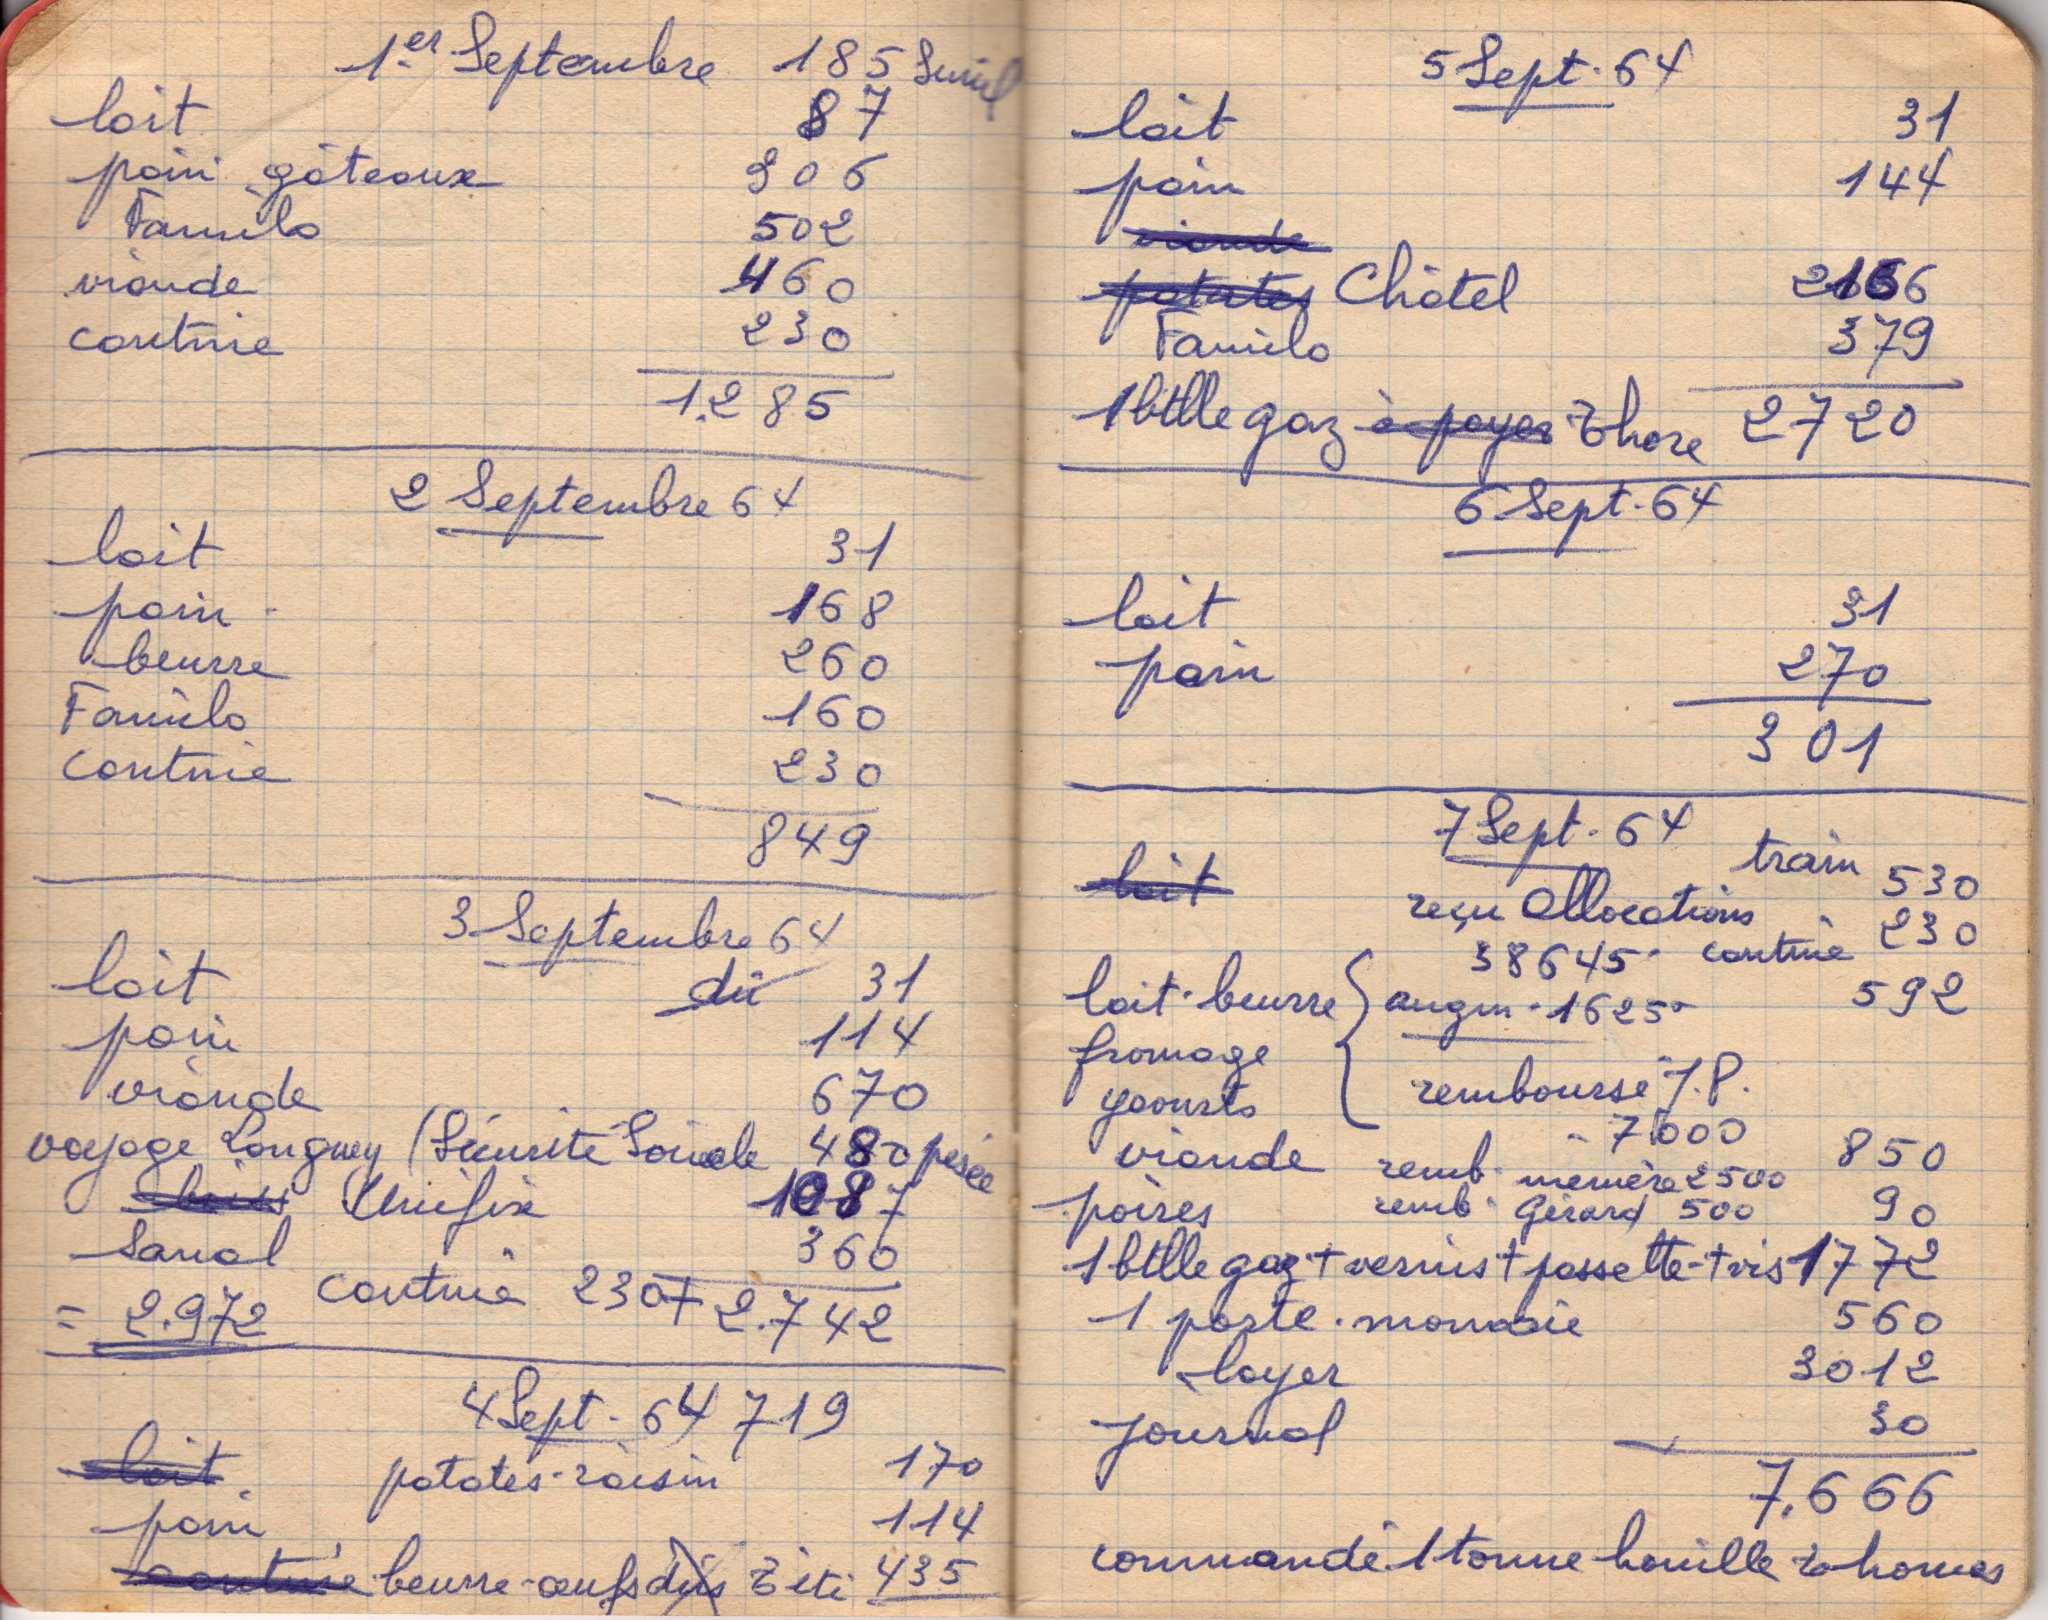 1er Septembre 185
lait 87
pain gâteaux 306
Familo 502
viande 460
cantine 230
1.285
2 Septembre 64
lait 31
pain 168
beurre 260
Familo 160
cantine 230
849
3 Septembre 64
lait dû 31
pain 114
viande 670
voyage Longwy (Sécurité Sociale 480 pesée
Unifix 1087
Sanal 360
cantine 230 + 2.742
= 2.972
4 Sept. 64 719
lait patates-raisin 170
pain 114
cantine beurre-œufs dûs Titi 435
5 Sept. 64
lait 31
pain 144
viande
patates Châtel 2166
Familo 379
1 btlle gaz à payer Thore 2720
6 Sept. 64
lait 31
pain 270
301
7 Sept. 64
train 530
lait reçu Allocations
38645 cantine 230
lait-beurre } augm. 16250 592
fromage
yaourts remboursé J.P.
7000
viande 850
remb. mémère 2500
poires remb. Gérard 500 90
1 btlle gaz + vernis + passette + vis 1772
1 porte-monnaie 560
loyer 3012
journal 30
7.666
commandé 1 tonne houille